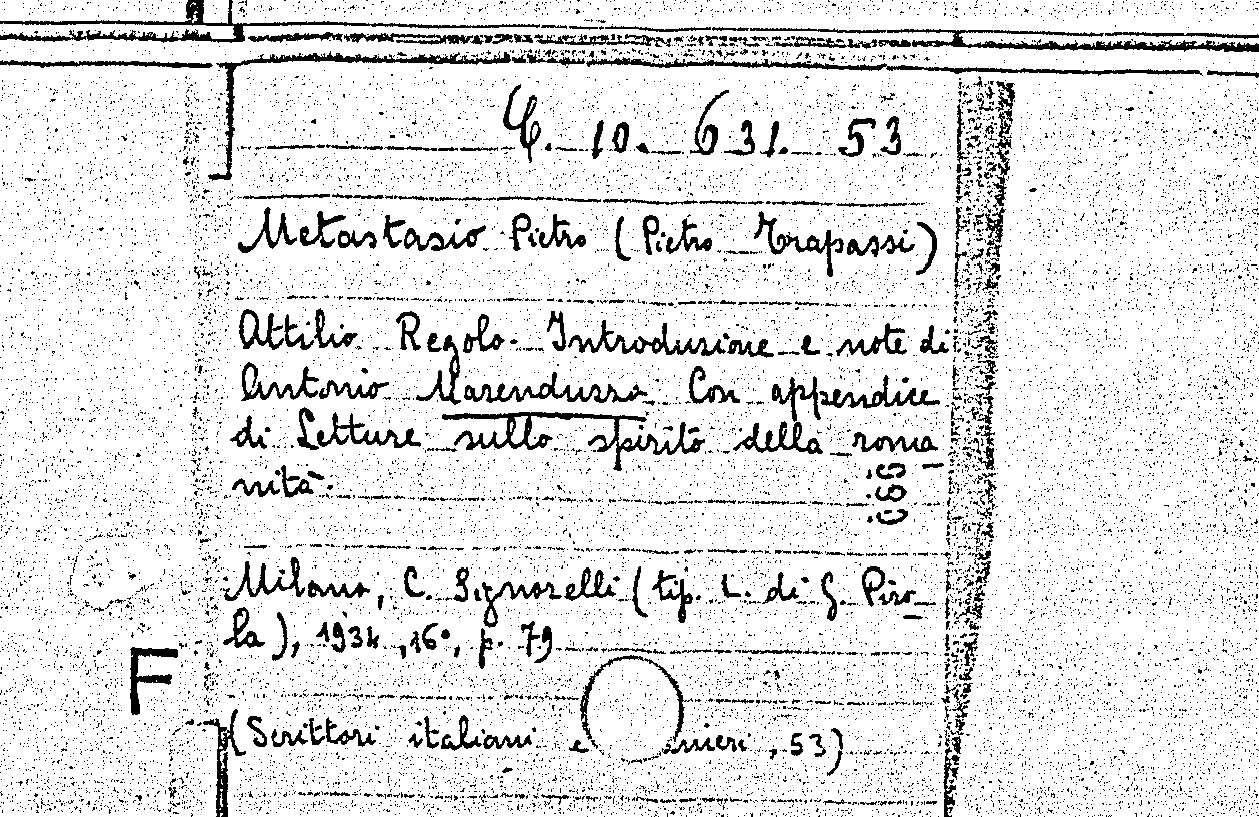 C. 10. 631. 53
Metastasio Pietro (Pietro Trapassi)
Attilio Regolo. Introduzione e note di
Antonio Marenduzzo Con appendice
di Letture sullo spirito della roma
nità.
Milano, C. Signorelli (tip. L. di G. Piro_
la), 1934, 16°, p. 79
F
(Scrittori italiani e nieri, 53)